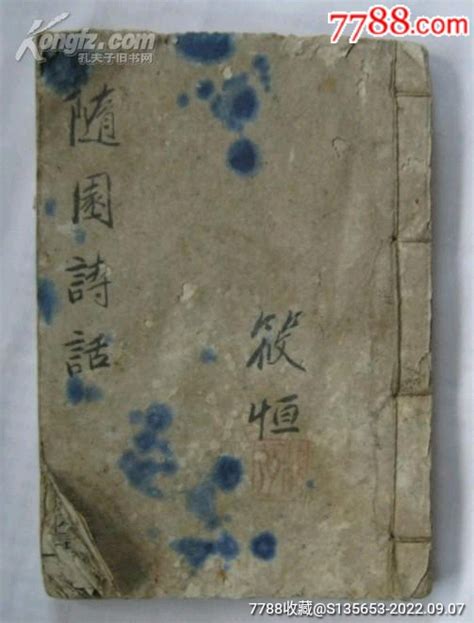 7788.com
Kongfz.com
孔夫子旧书网
隨園詩話
筱恒
7788收藏@S135653-2022.09.07